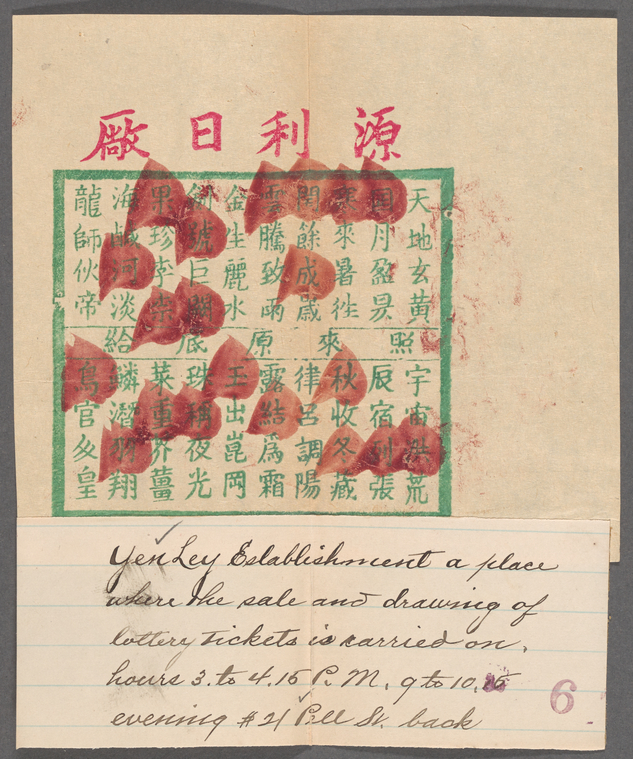 源利日廠
天地玄黃
月盈昃
寒來暑徃
閏餘成歲
雲騰致雨
金生麗水
劍號巨闕
果珍李柰
海鹹河淡
龍師伙帝
照來原底給
宇宙洪荒
辰宿列張
秋收冬藏
律呂調陽
露結爲霜
玉出崑岡
珠稱夜光
菜重芥薑
鱗潛羽翔
鳥官皇
Yen Ley Establishment a place
where the sale and drawing of
lottery tickets is carried on,
hours 3. to 4.15 P. M. 9 to 10.
evening # 21 Pell St. back
6